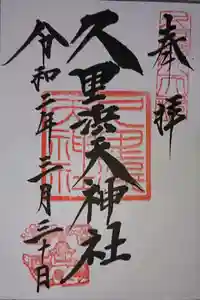 奉拝
久里浜天神社
令和二年三月二十日